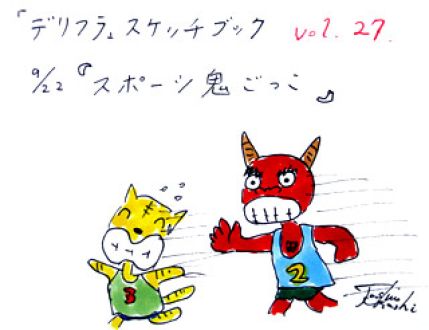 「デリフラ」スケッチブック vol.27.
9/22『スポーツ鬼ごっこ』
3
2